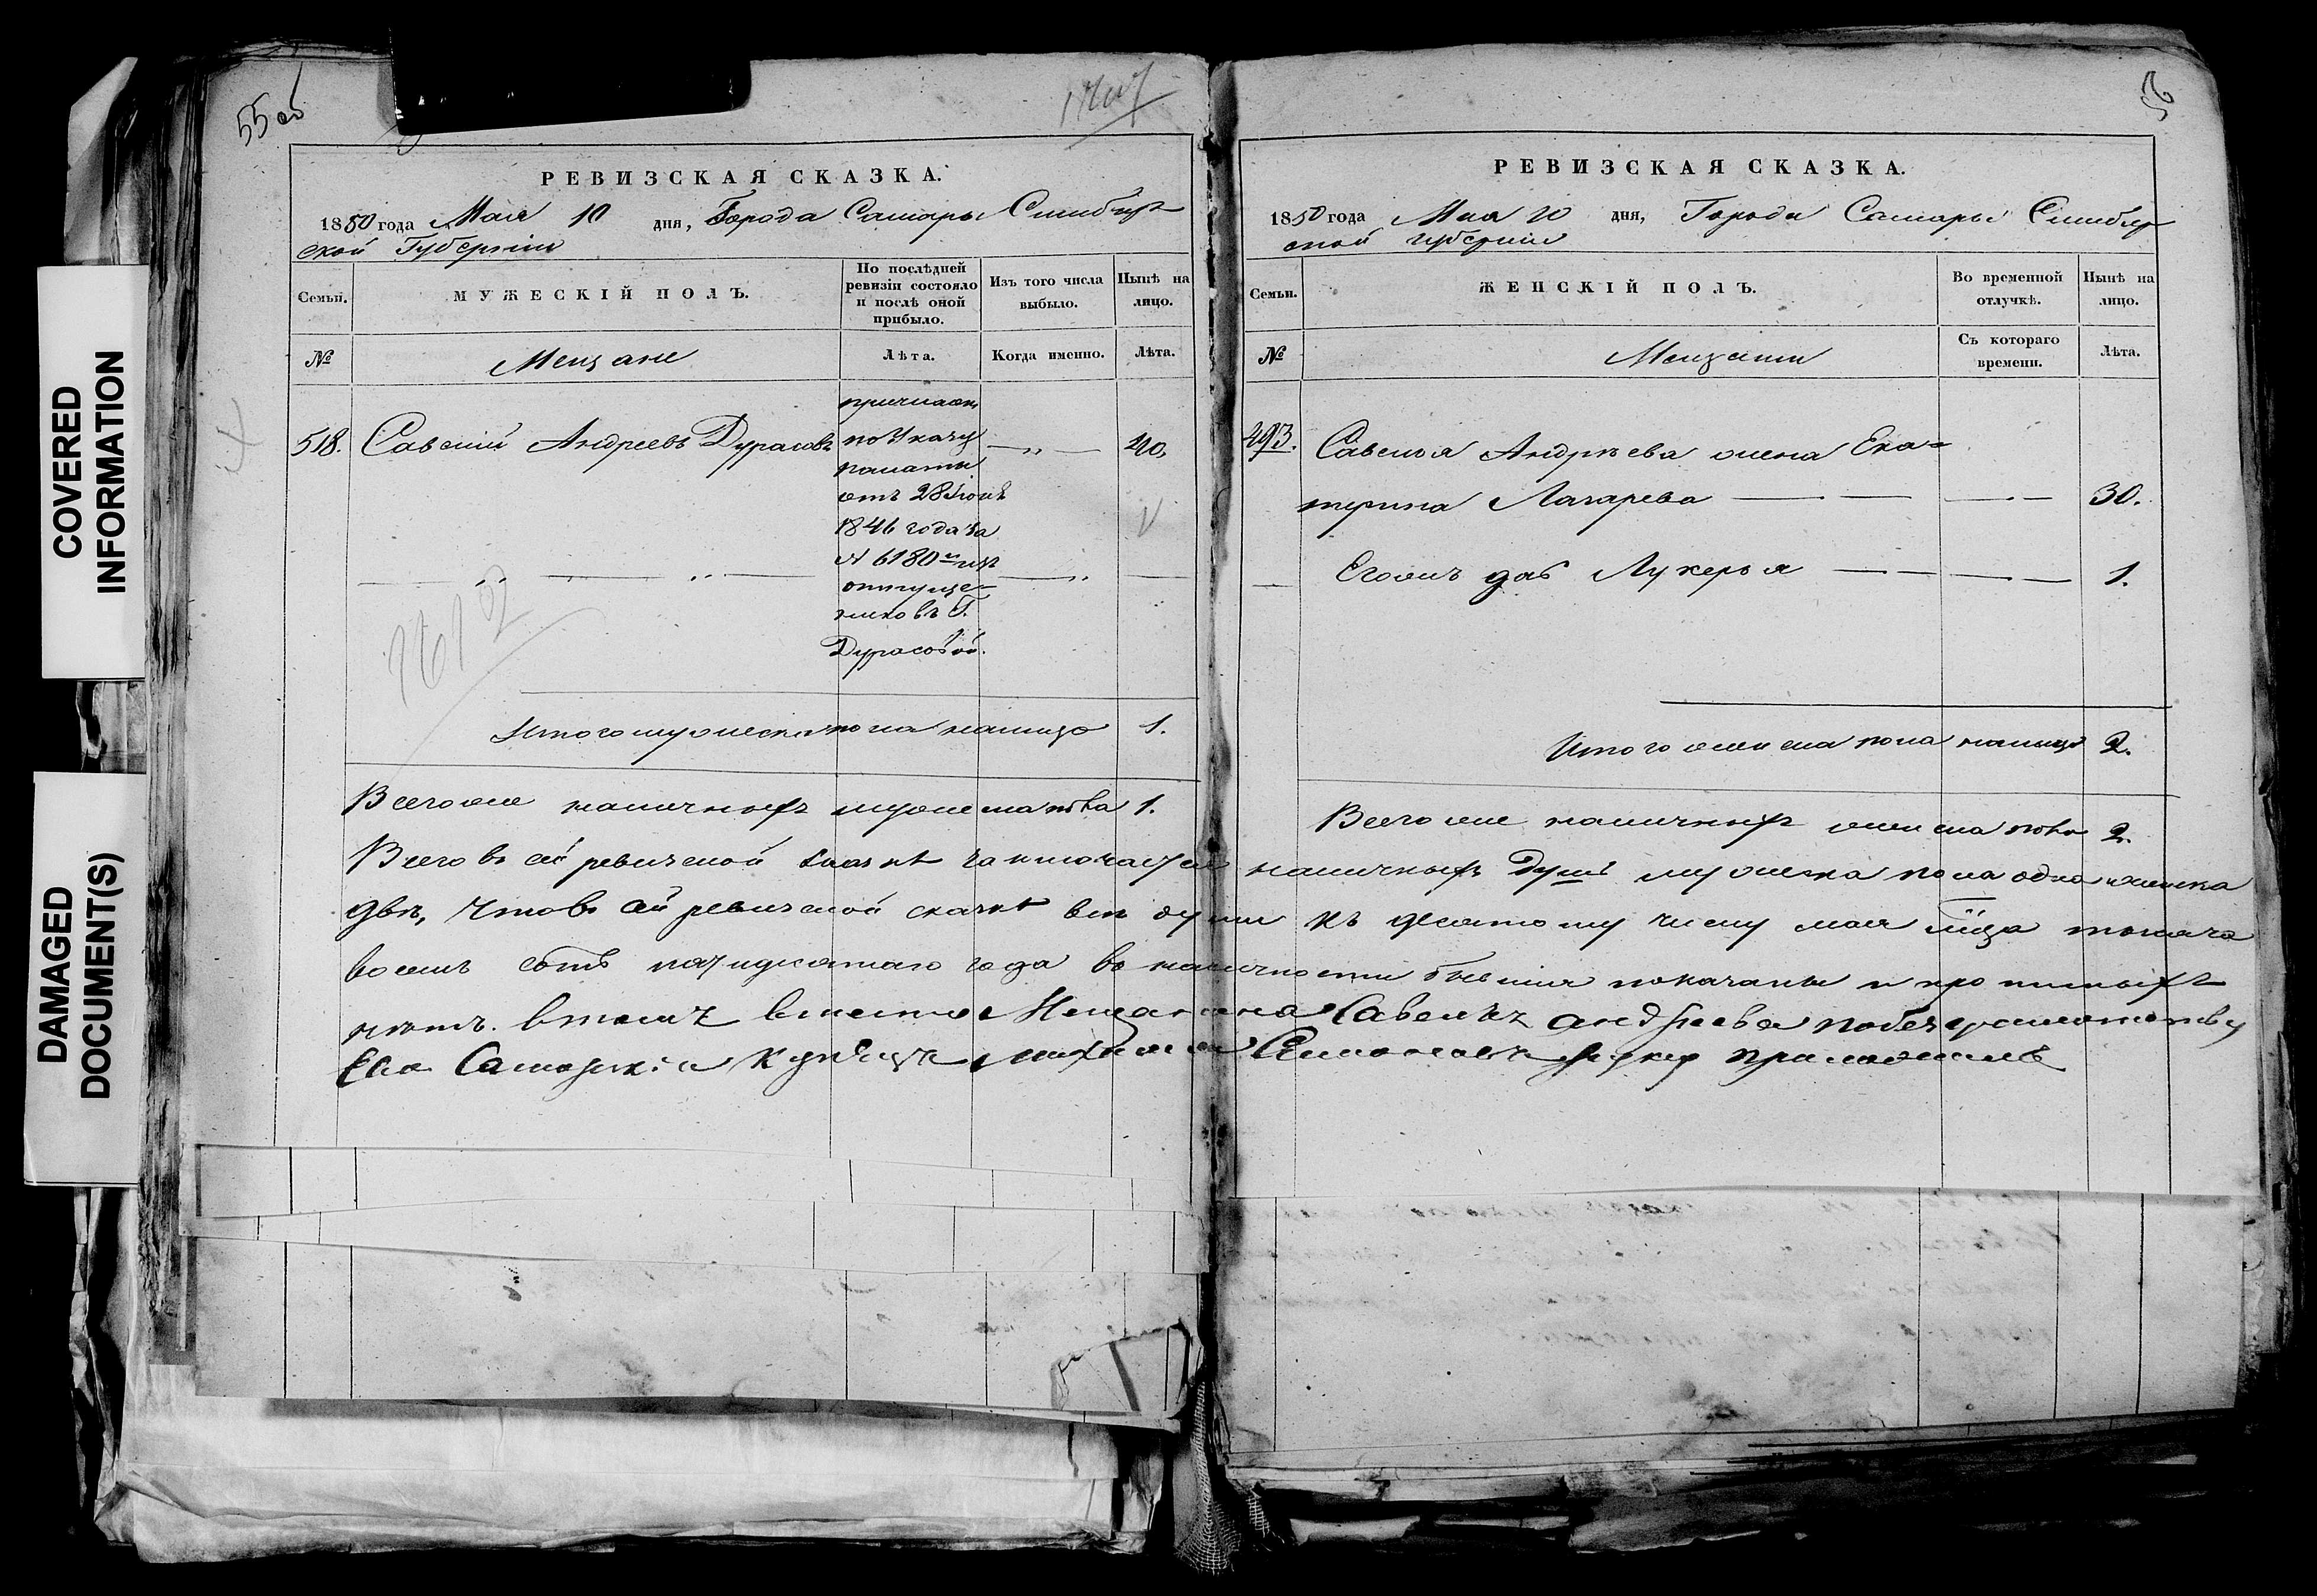 COVERED
INFORMATION
DAMAGED
DOCUMENT(S)
55 об
РЕВИЗСКАЯ СКАЗКА.
1850 года Мая 10 дня, Города Самары Симбир
ской Губернiи
Семьи.
МУЖЕСКІЙ ПОЛЪ.
По послѣдней
ревизіи состояло
и послѣ оной
прибыло.
Изъ того числа
выбыло.
Нынѣ на
лицо.
№
Мещане
Лѣта.
Когда именно.
Лѣта.
518. Савелий Андреевъ Дурасовъ
причислен
по Указу
палаты
отъ 28 Iюня
1846 года за
№ 6180 м изъ
отпуще-
никовъ Г.
Дурасовой.
40.
1612
Итого мужеска пола налицо 1.
Всего же наличныхъ мужеска пола 1.
56
РЕВИЗСКАЯ СКАЗКА.
1850 года Мая 10 дня, Города Самары Симбир
ской губернiи
Семьи.
ЖЕНСКІЙ ПОЛЪ.
Во временной
отлучкѣ.
Нынѣ на
лицо.
№
Мещанки
Съ котораго
времени.
Лѣта.
493. Савелья Андрѣева жена Ека=
терина Лазарева 30.
Его жъ дочь Лукерья 1.
Итого женска пола налицо 2.
Всего же наличныхъ женска пола 2.
Всего въ сей ревизской сказкѣ заключается наличныхъ душъ мужеска пола одна женска
двѣ, Что въ сей ревизской сказкѣ всѣ души къ десятому числу мая мца тысяча
восемь сотъ пятидесятаго года въ наличности бывшiя показаны и прописныхъ
нѣтъ. Втомъ вместо Мещанина Савелья андреева побезграмотству
Ево Самарскiй купецъ Симоновъ руку приложилъ